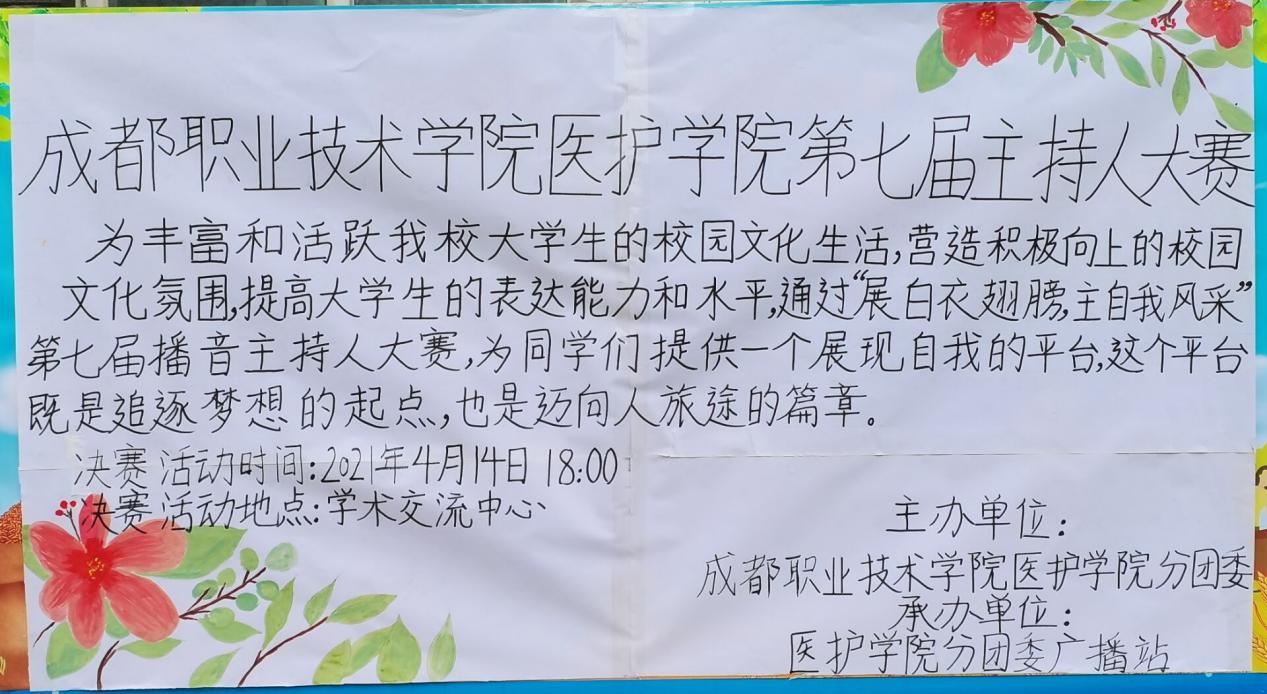 成都职业技术学院医护学院第七届主持人大赛
为丰富和活跃我校大学生的校园文化生活,营造积极向上的校园
文化氛围,提高大学生的表达能力和水平,通过“展白衣翅膀,主自我风采”
第七届播音主持人大赛,为同学们提供一个展现自我的平台,这个平台
既是追逐梦想的起点,也是迈向人旅途的篇章。
决赛活动时间:2021年4月14日 18:00
决赛活动地点:学术交流中心
主办单位:
成都职业技术学院医护学院分团委
承办单位:
医护学院分团委广播站